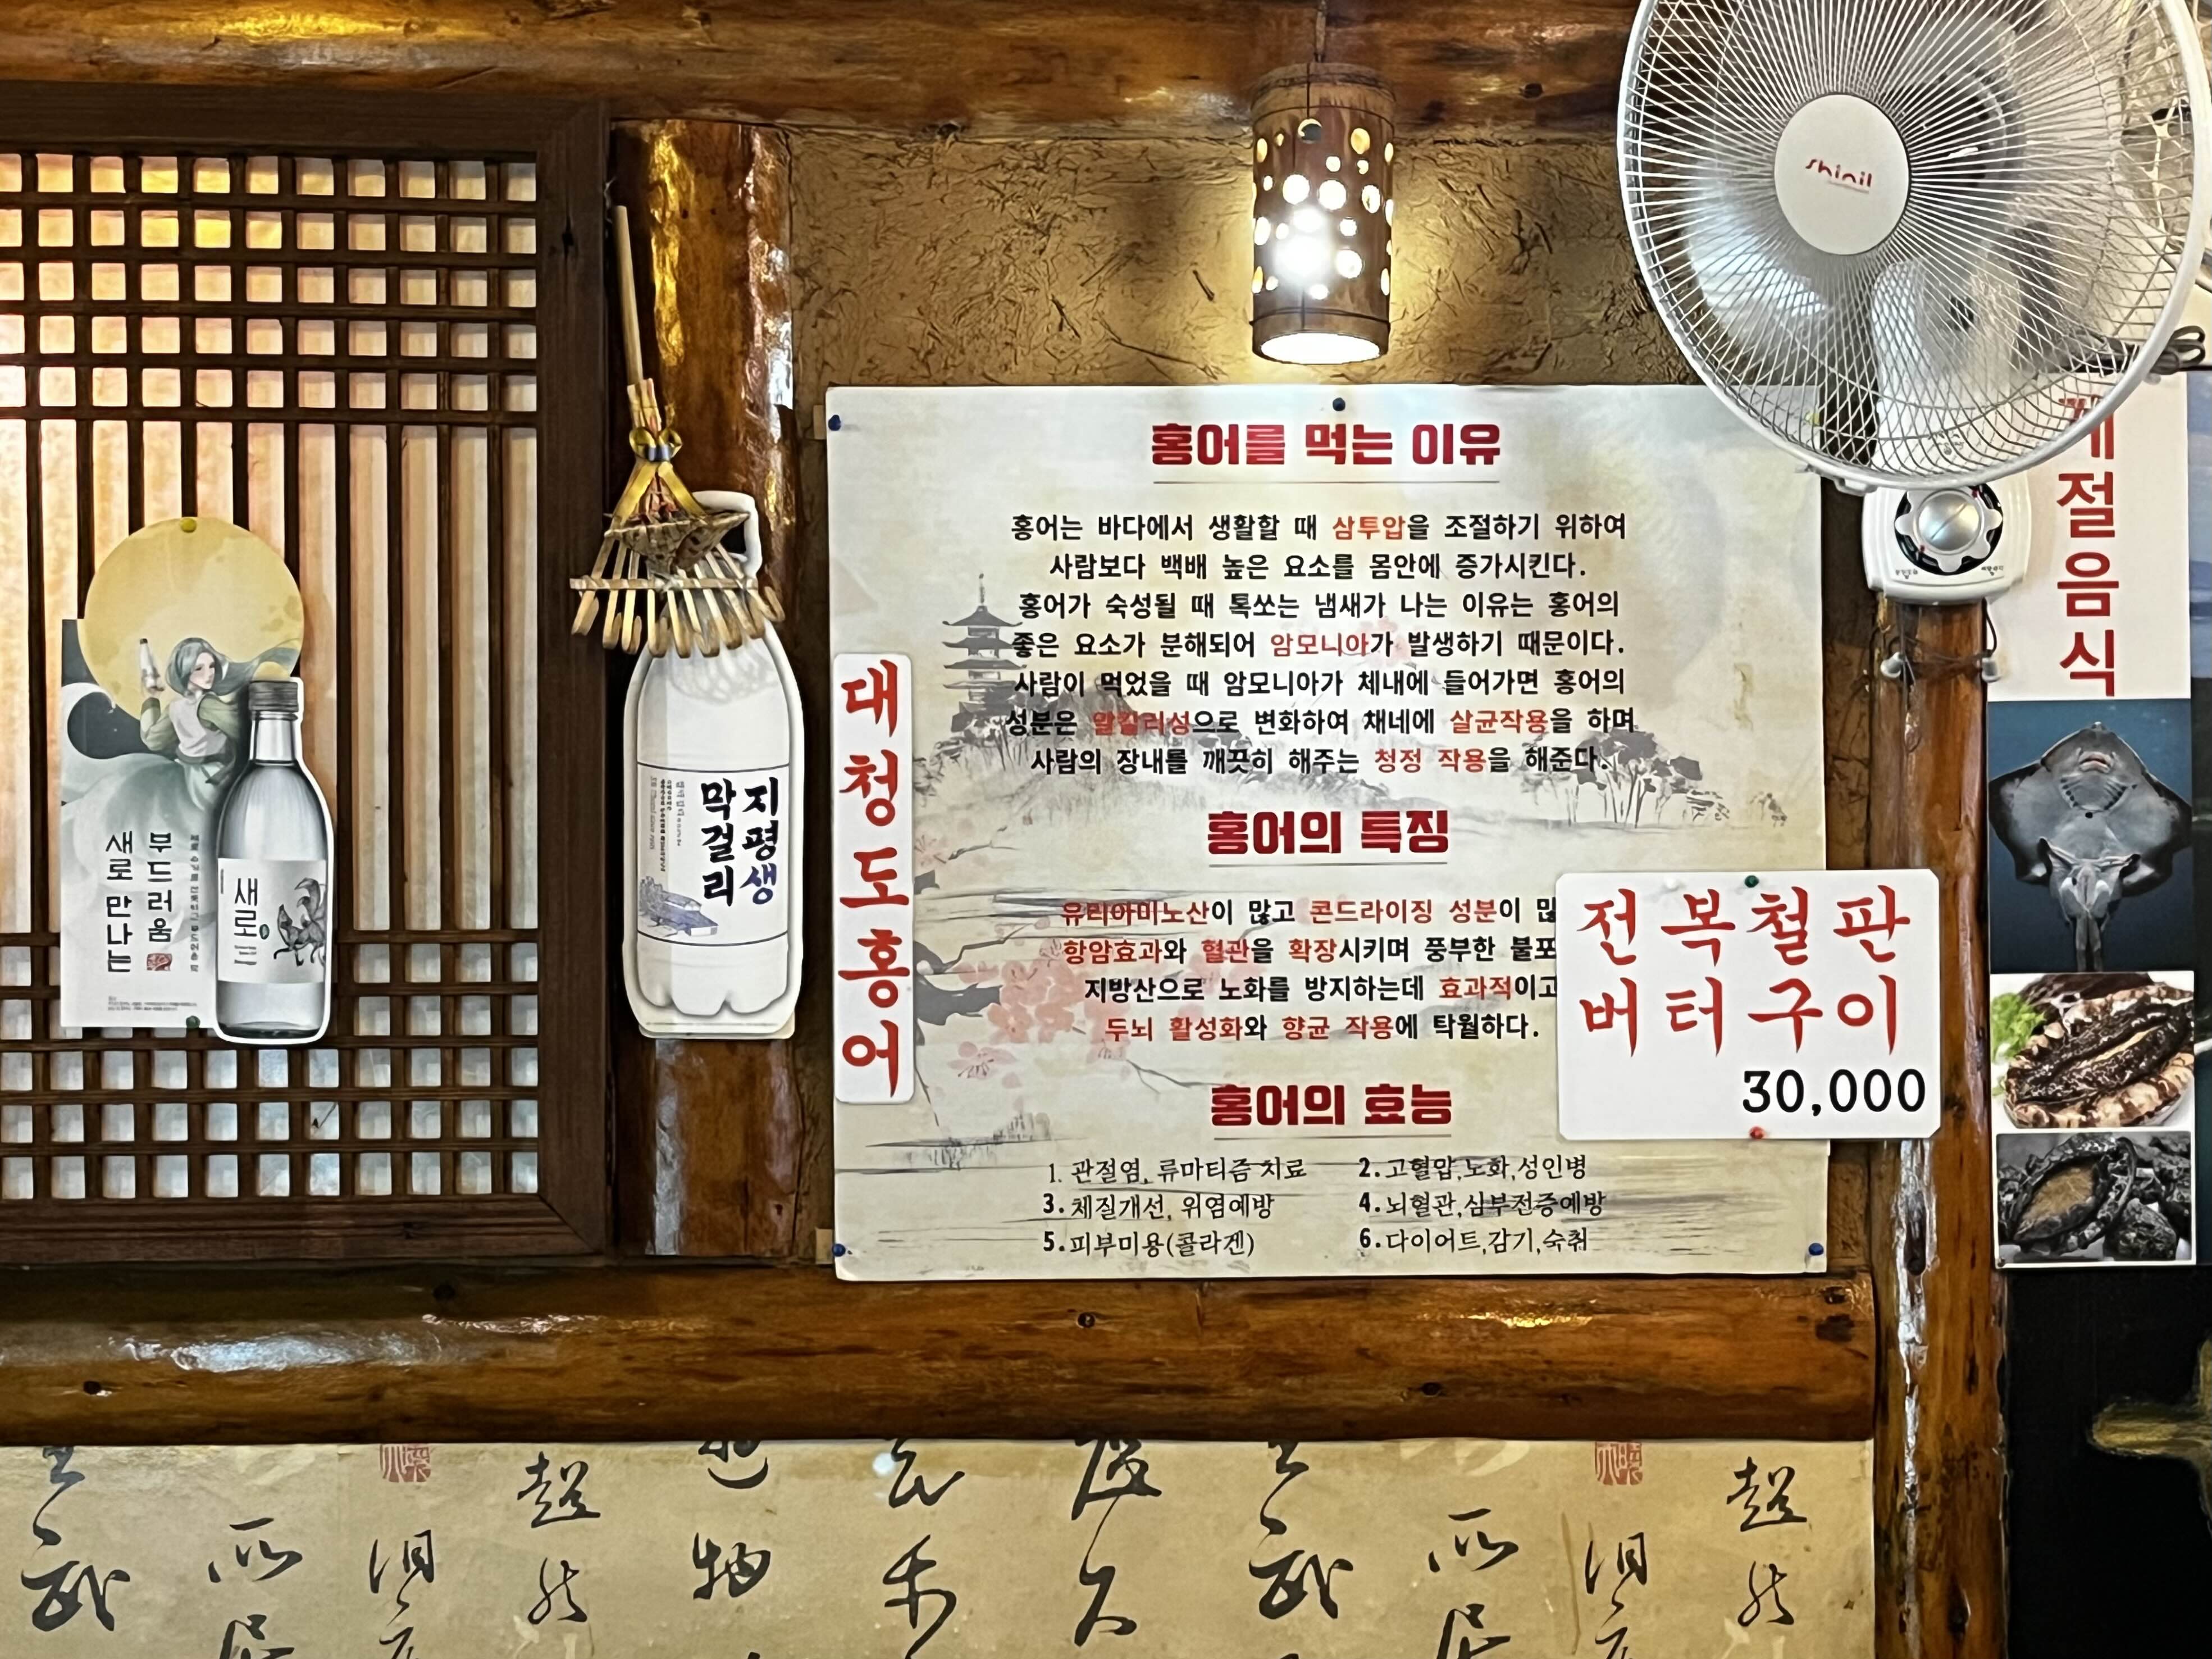 shinil
홍어를 먹는 이유
홍어는 바다에서 생활할 때 삼투압을 조절하기 위하여
사람보다 백배 높은 요소를 몸안에 증가시킨다.
홍어가 숙성될 때 톡쏘는 냄새가 나는 이유는 홍어의
좋은 요소가 분해되어 암모니아가 발생하기 때문이다.
사람이 먹었을 때 암모니아가 체내에 들어가면 홍어의
성분은 알칼리성으로 변화하여 채네에 살균작용을 하며
사람의 장내를 깨끗히 해주는 청정 작용을 해준다.
홍어의 특징
유리아미노산이 많고 콘드라이징 성분이
항암효과와 혈관을 확장시키며 풍부한 불포
지방산으로 노화를 방지하는데 효과적이고
두뇌 활성화와 향균 작용에 탁월하다.
홍어의 효능
1. 관절염, 류마티즘 치료
2. 고혈압,노화,성인병
3. 체질개선, 위염예방
4. 뇌혈관,심부전증예방
5. 피부미용(콜라겐)
6. 다이어트,감기,숙취
대청도홍어
전복철판
버터구이
30,000
계절음식
지평생
막걸리
부드러움
새로 만나는
새로
超
物